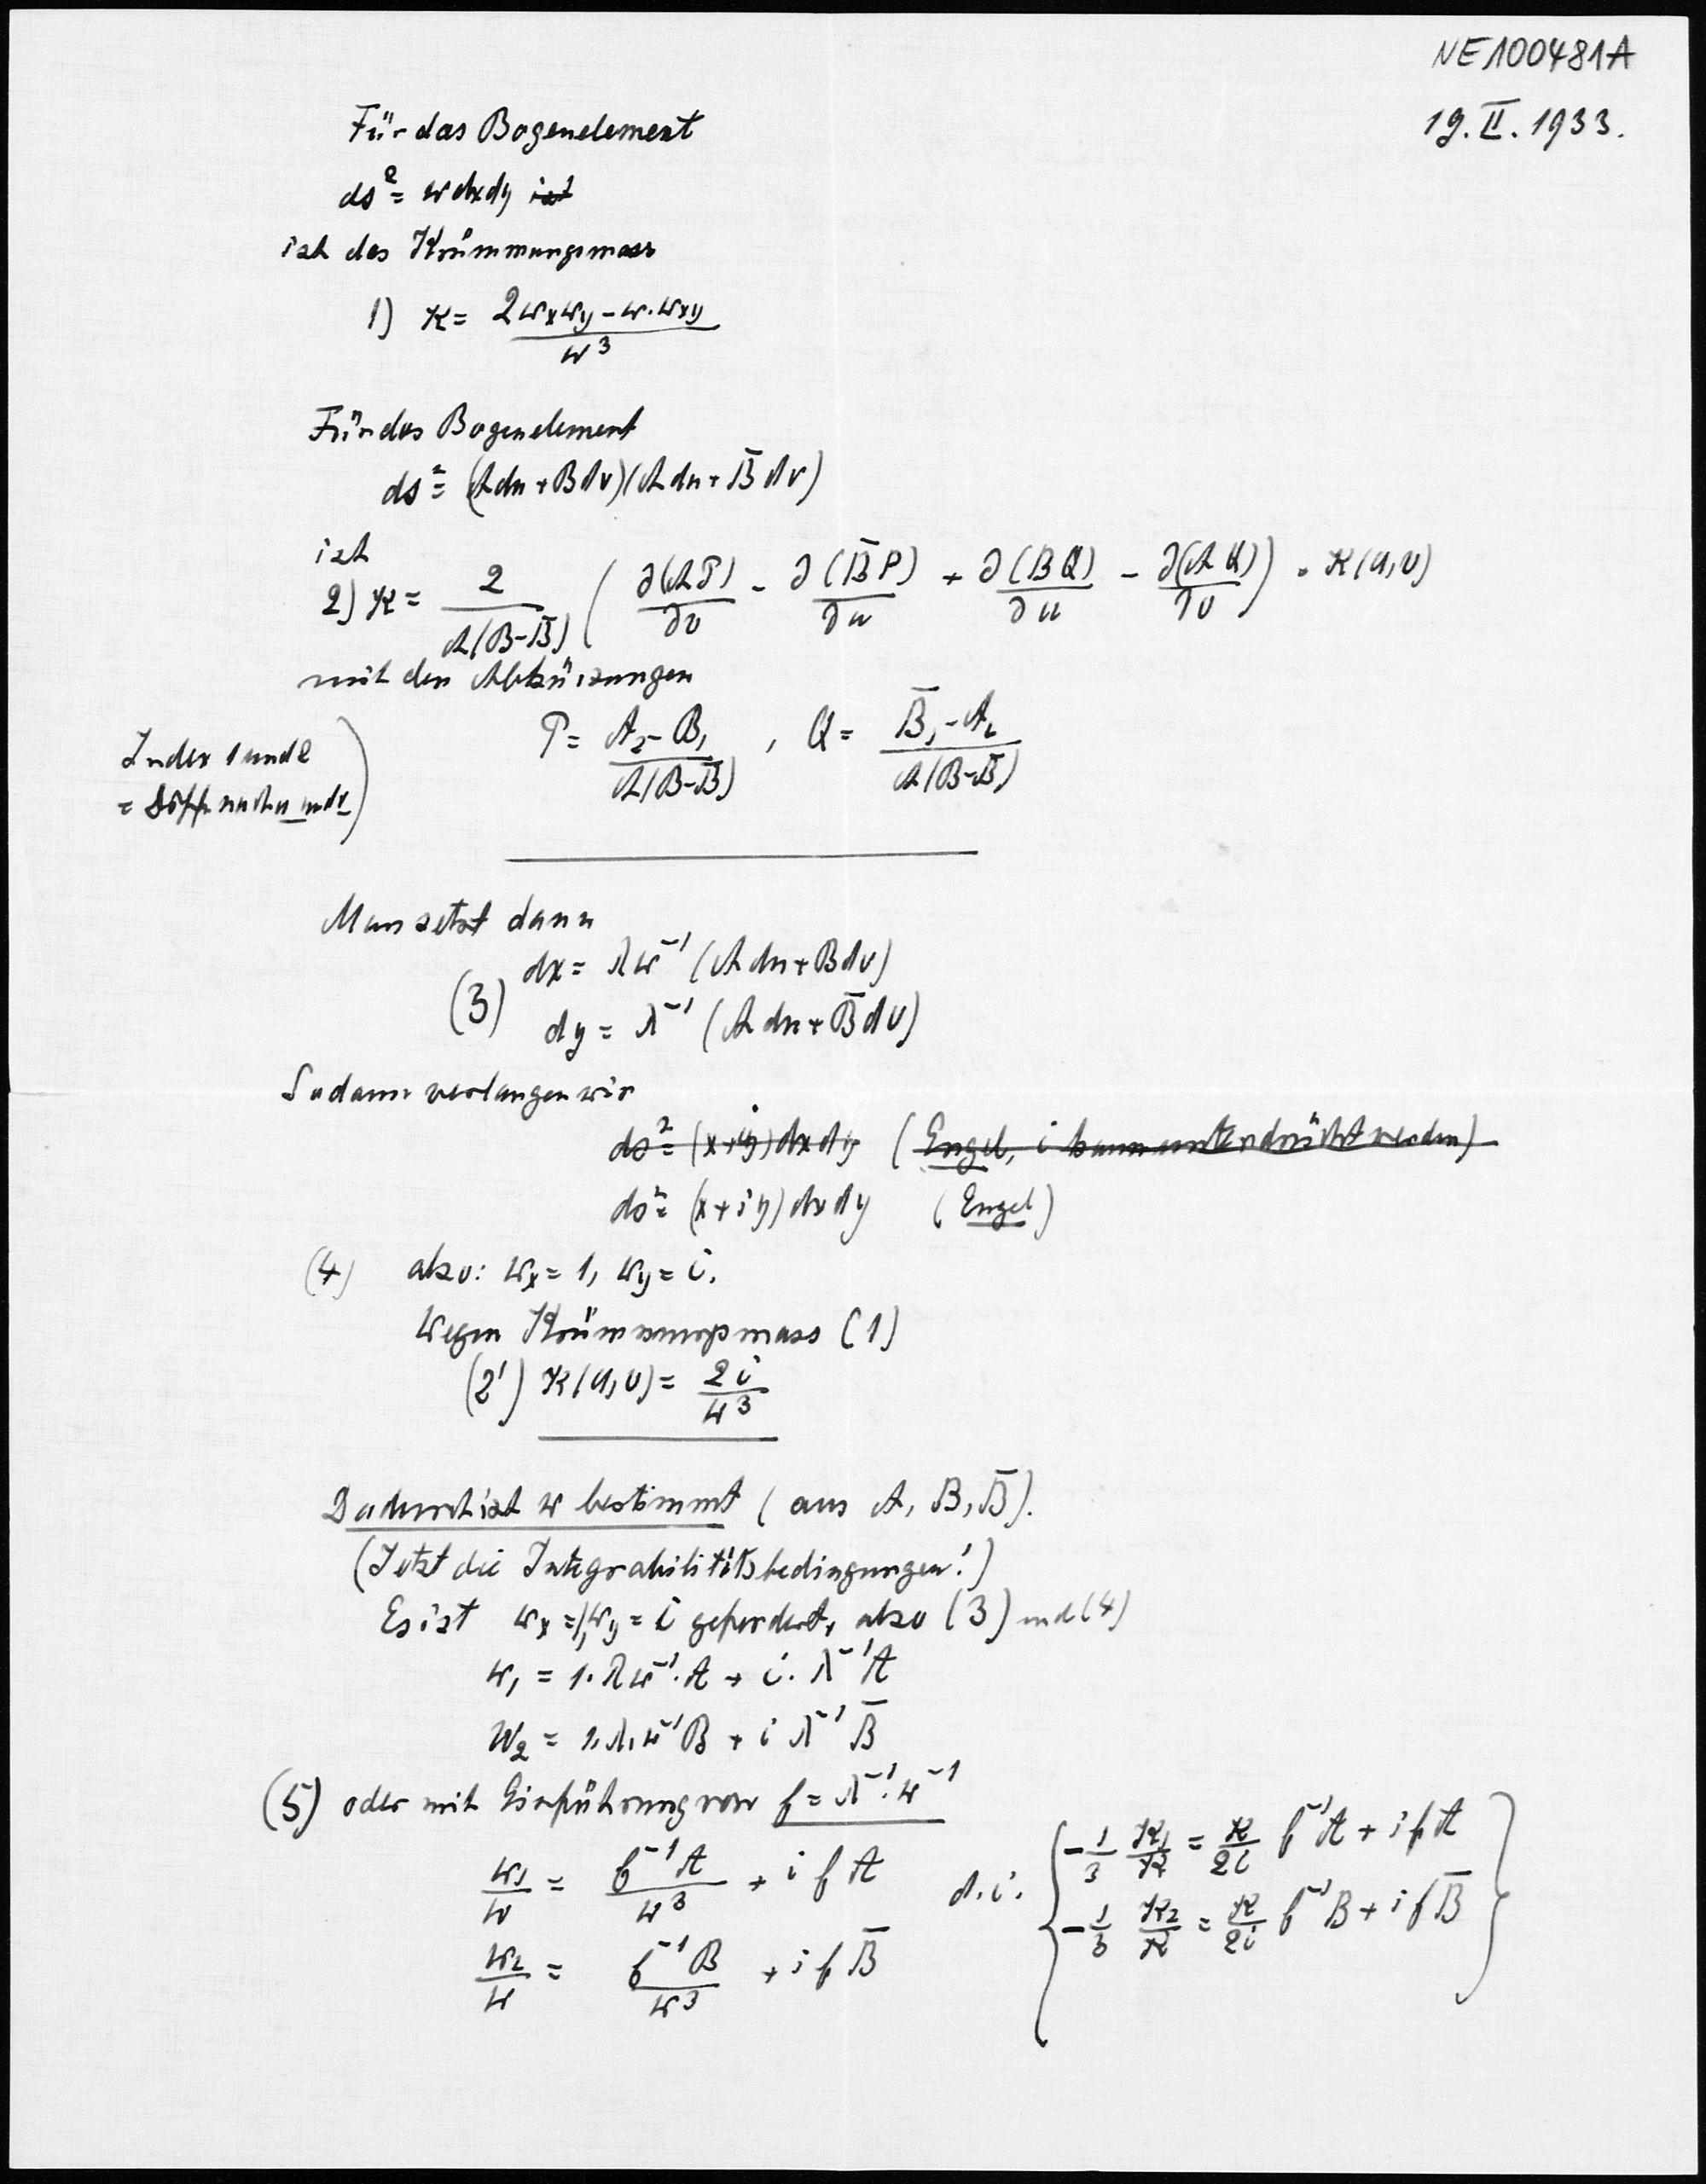 NE100481A
19. II. 1933.
Für das Bogenelement
ds² = w dx dy ist
ist das Krümmungsmass
1) K = (2 w_x w_y - w · w_xy) / w³
Für das Bogenelement
ds² = (A du + B dv)(A du + B̄ dv)
ist
2) K = 2 / (A(B - B̄)) ( ∂(AP)/∂v - ∂(B̄P)/∂u + ∂(BQ)/∂u - ∂(AQ)/∂v ) = K(u,v)
mit den Abkürzungen
P = (A₂ - B₁) / (A(B - B̄)) , Q = (B̄₁ - A₂) / (A(B - B̄))
Index 1 und 2
= Diff nach u und v )
Man setzt dann
dx = λ w⁻¹ (A du + B dv)
(3)
dy = λ⁻¹ (A du + B̄ dv)
Sodann verlangen wir
ds² = (x + iy) dx dy (Engel, i kann unterdrückt werden)
ds² = (x + iy) dx dy (Engel)
(4) also: w_x = 1, w_y = i.
Wegen Krümmungsmass (1)
(2') K(u,v) = 2i / w³
Dadurch ist w bestimmt (aus A, B, B̄).
(Jetzt die Integrabilitätsbedingungen!)
Es ist w_x = 1, w_y = i gefordert, also (3) und (4)
w₁ = 1 · λ w⁻¹ · A + i · λ⁻¹ A
w₂ = 1 · λ · w⁻¹ B + i λ⁻¹ B̄
(5) oder mit Einführung von f = λ⁻¹ · w⁻¹
w₁/w = f⁻¹A / w³ + i f A
w₂/w = f⁻¹B / w³ + i f B̄
d.i. { -1/3 K₁/K = K/2i f⁻¹ A + i f A
-1/3 K₂/K = K/2i f⁻¹ B + i f B̄ }